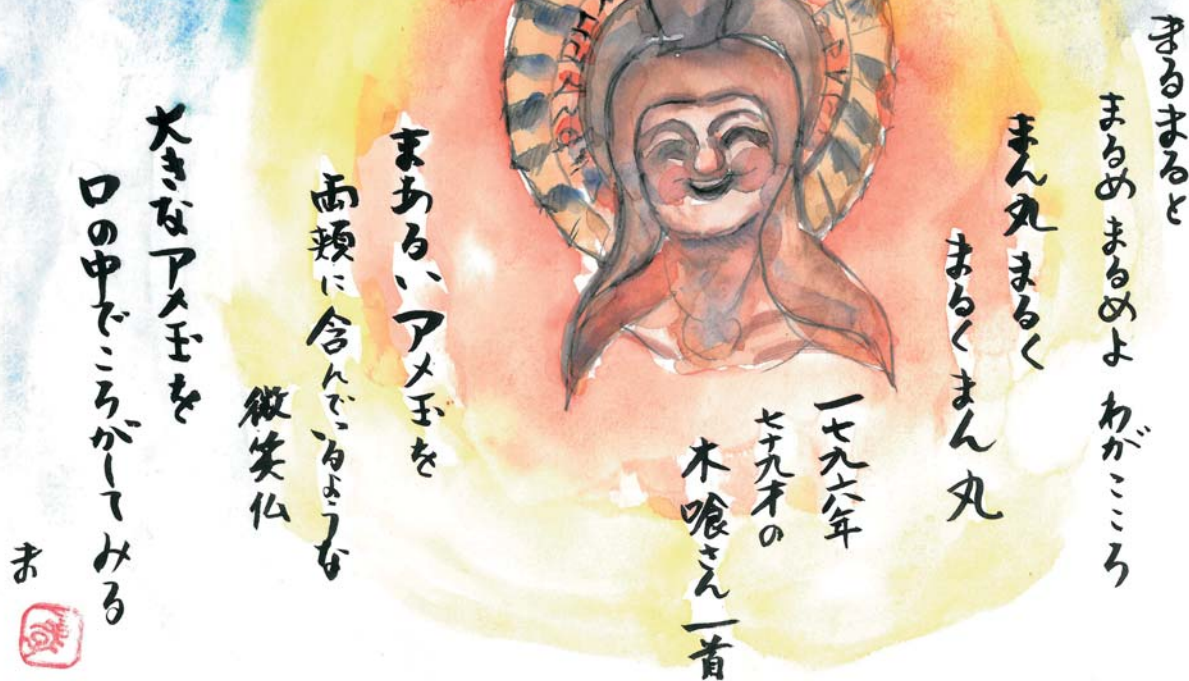 まるまると
まるめ まるめよ わがこころ
まん丸 まるく
まるくまん丸
一七九六年
七十九才の
木喰さん 一首
まあるい アメ玉を
両頬に 含んでいるような
微笑仏
大きなアメ玉を
口の中でころがしてみる
ま